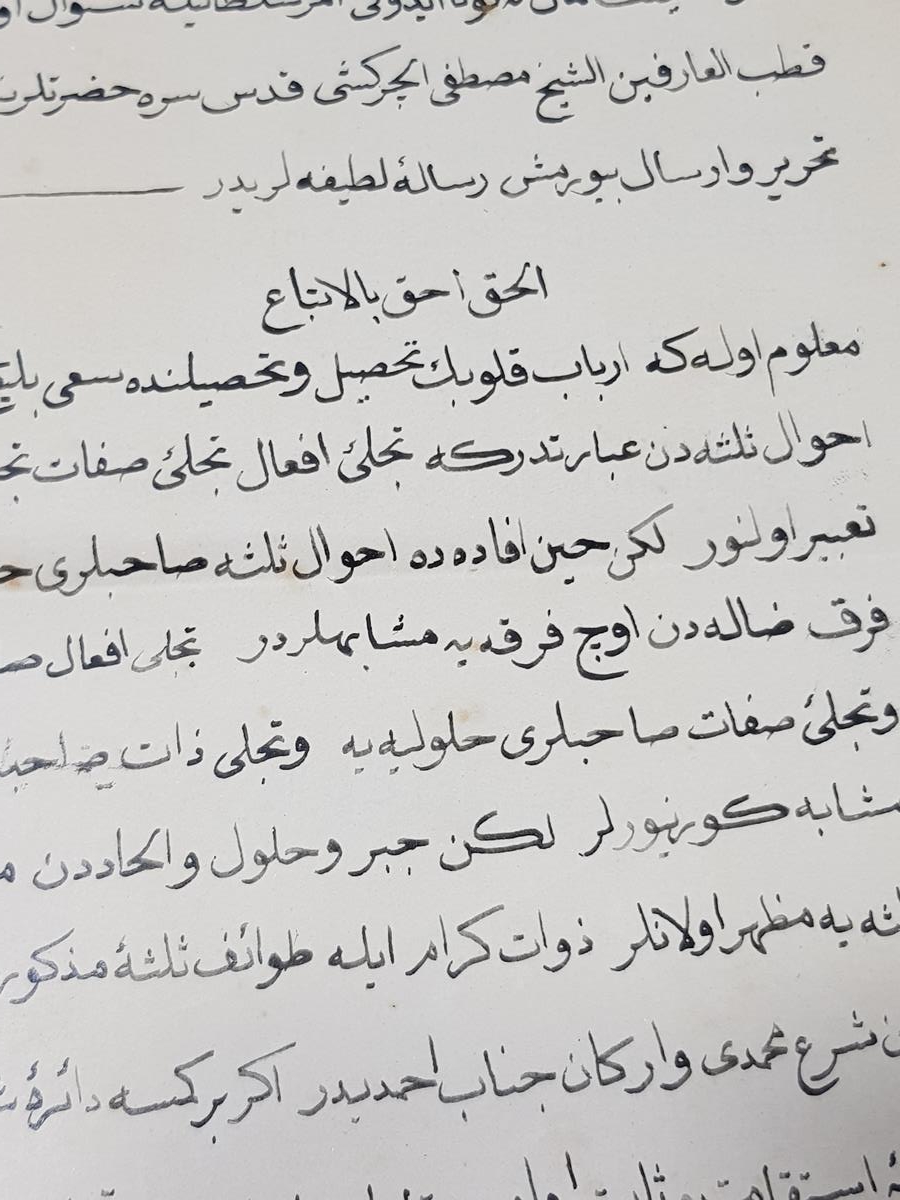 قطب العارفين الشيخ مصطفى الچركشى قدس سره حضرتلرى
تحرير وارسال بيورمش رسالۀ لطيفه لريدر
الحق احق بالاتباع
معلوم اوله كه ارباب قلوبك تحصيل وتحصيلنده سعى بليغ
احوال ثلثه دن عبارتدركه تجلئ افعال تجلئ صفات
تعبير اولنور لكن حين افاده ده احوال ثلثه صاحبلرى
فرق ضاله دن اوچ فرقه يه مشابهلردر تجلى افعال
وتجلئ صفات صاحبلرى حلوليه يه وتجلى ذات
مشابه كورينورلر لكن جبر وحلول واتحاددن
يه مظهر اولانلر ذوات كرام ايله طوائف ثلثۀ
شرع محمدى واركان جناب احمديدر اكر بركسه دائرۀ